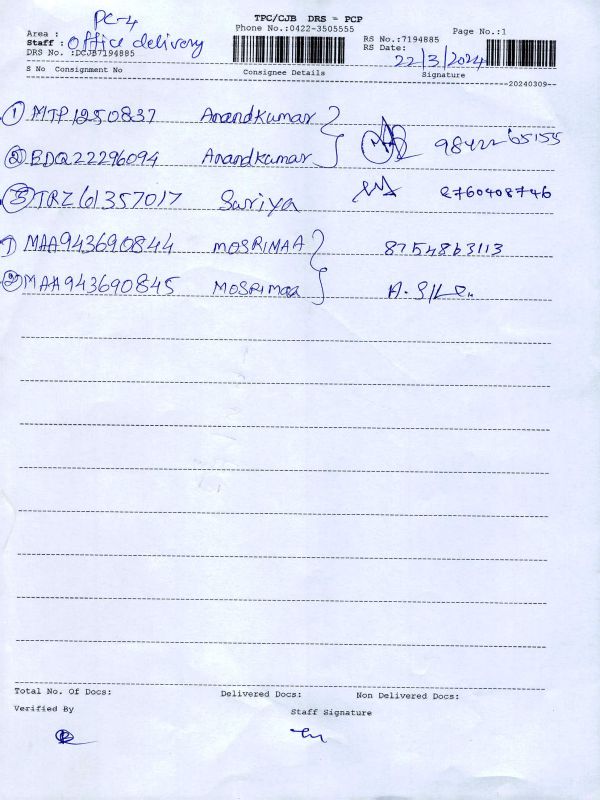 TPC/CJB DRS - PCP
PC-4
Phone No.:0422-3505555
Page No.:1
Area :
RS No.:7194885
Staff : Office delivery
RS Date: 22/3/2024
DRS No. :DCJB7194885
S No Consignment No Consignee Details Signature
20240309
1 MTP1250837 Anandkumar
98422 65155
2 BDQ22296094 Anandkumar
3 TRZ61357017 Suriya 8760408746
1 MAA943690844 MOSRIMAA 8754863113
2 MAA943690845 MOSRimaa
Total No. Of Docs: Delivered Docs: Non Delivered Docs:
Verified By Staff Signature